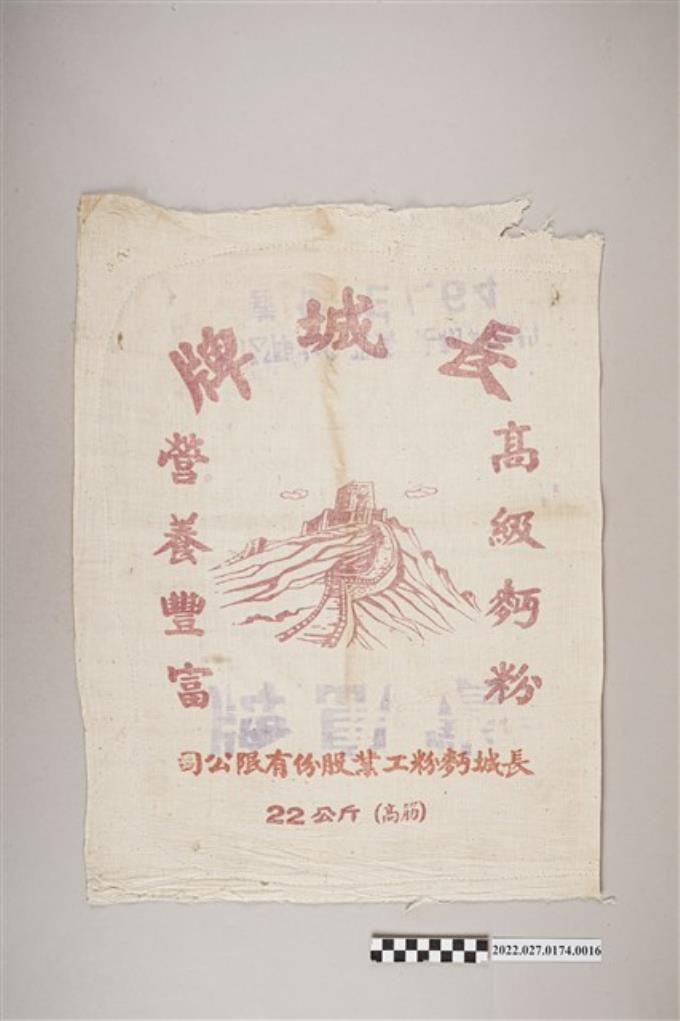 长城牌
高級麪粉
營養豐富
長城麪粉工業股份有限公司
22公斤(高筋)
2022.027.0174.0016